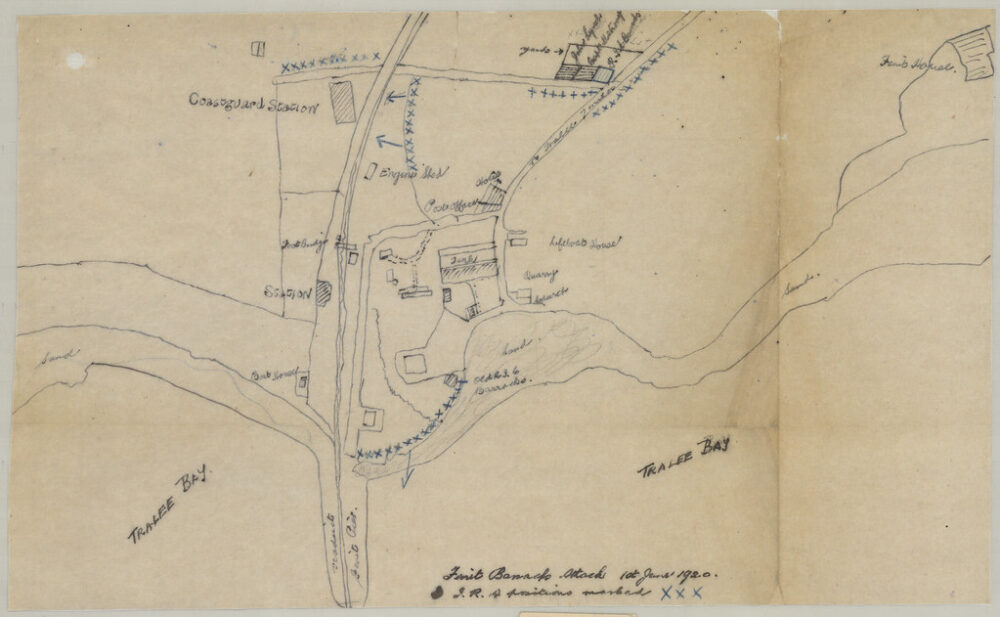 yards →
Fenit House.
Coastguard Station
Engine Shed
Hotel
Post Office
To Tralee
Foot Bridge
Lifeboat House
Quarry
Station
Sand.
Sand
Sand.
Boat House
Old R.I.C
Barracks.
Tralee Bay.
Tralee Bay
Viaduct
Fenit Pier.
Fenit Barracks Attack 1st June 1920.
I.R.A positions marked X X X